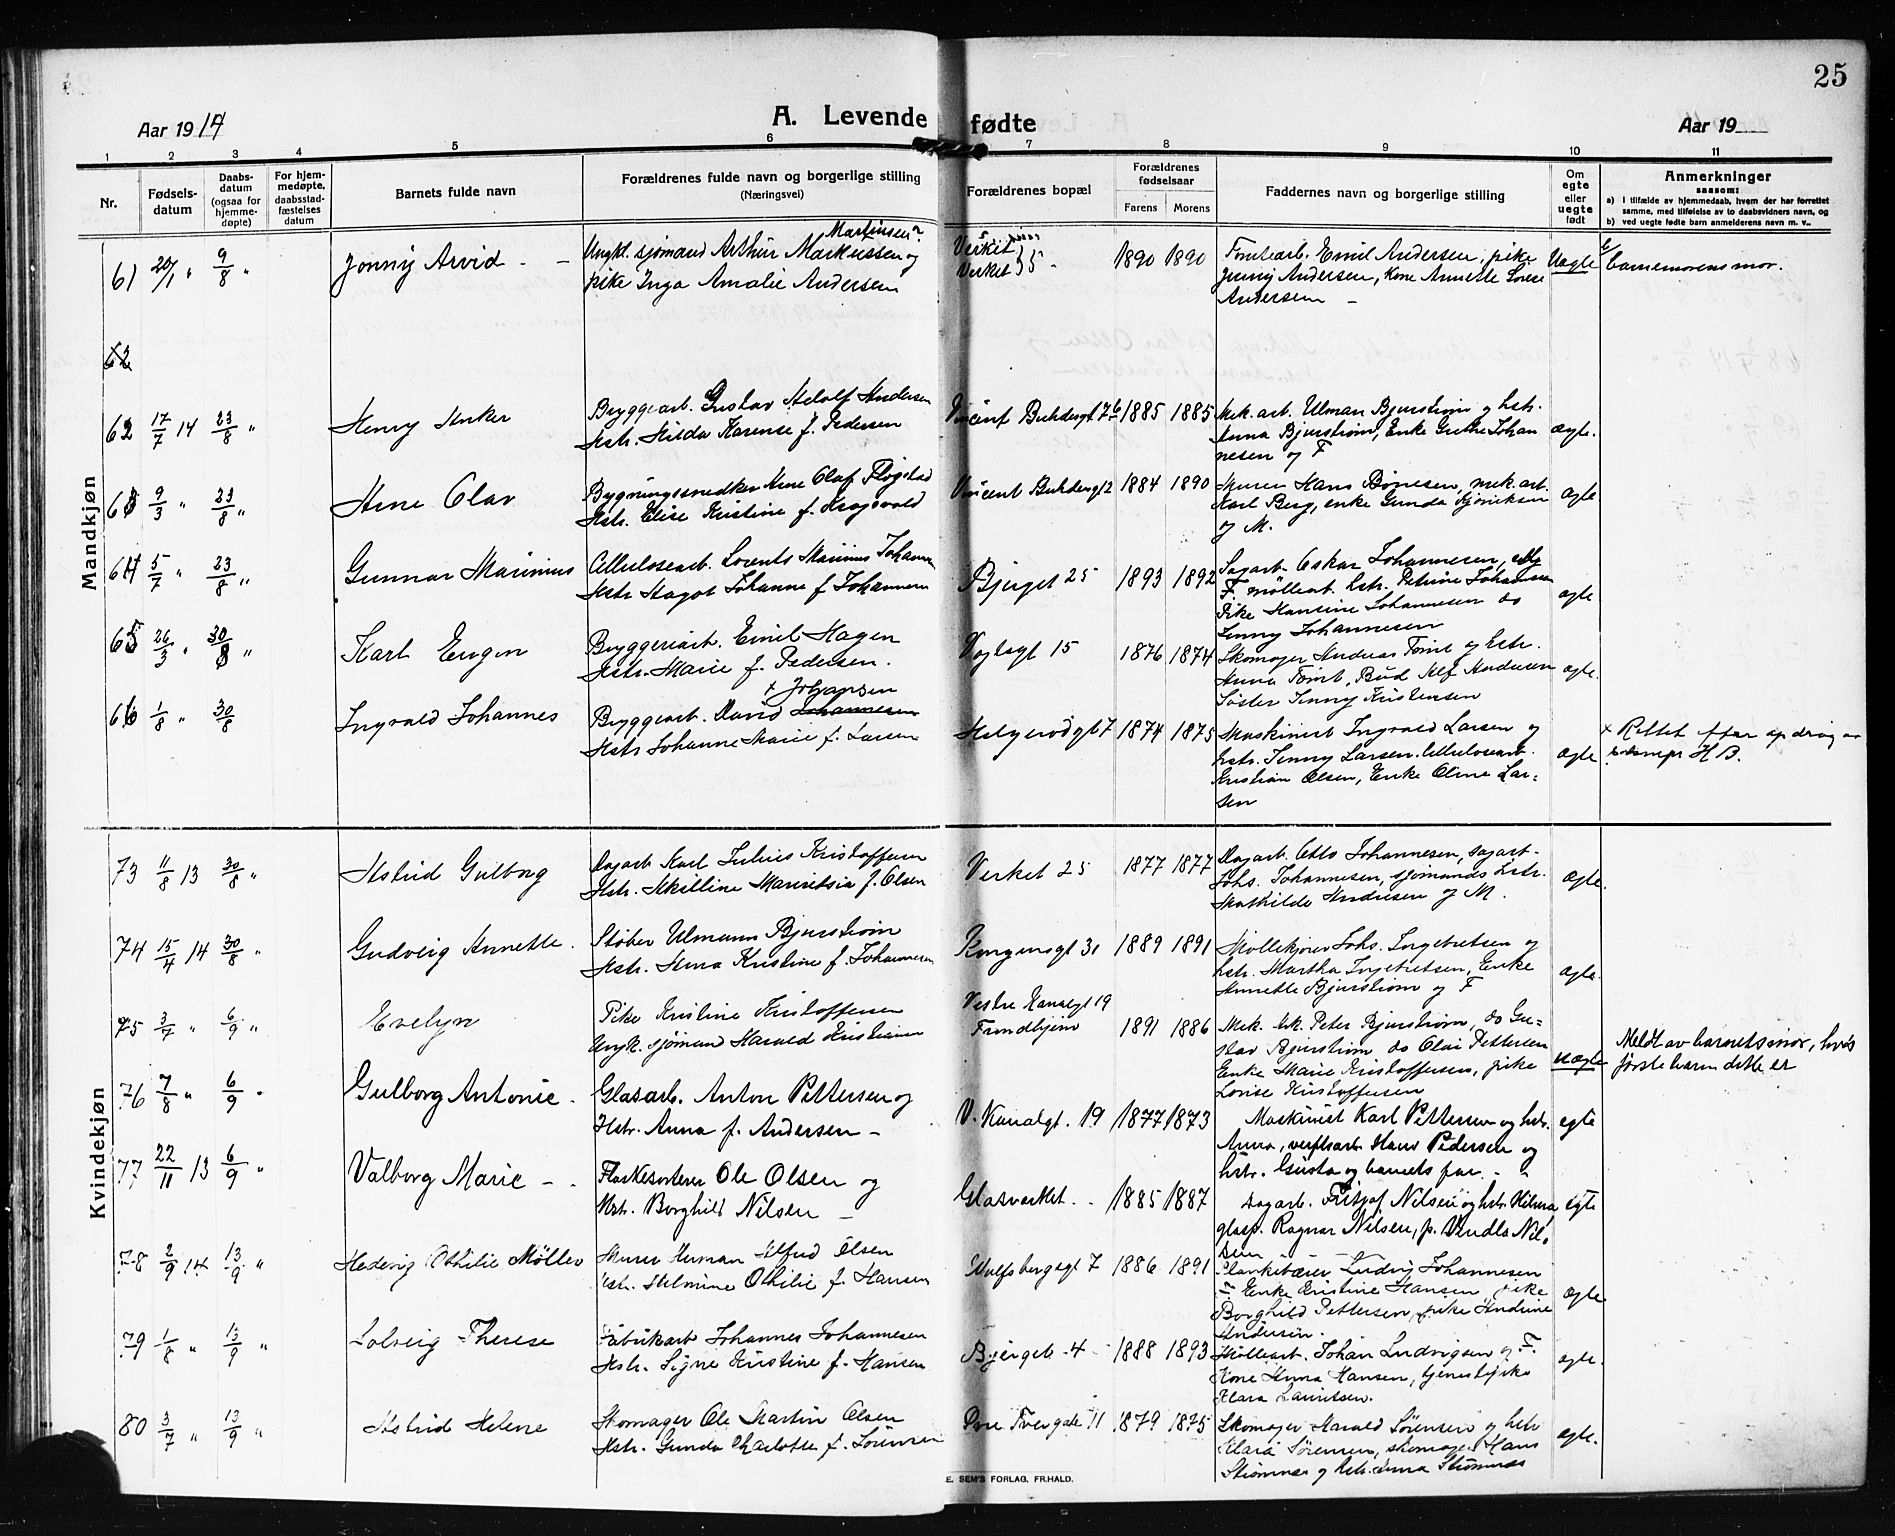 25
Aar 1914
A. Levende fødte
Aar 19
1 2 3 4 5 6 7 8 9 10 11
Nr.
Fødselsdatum
Daabsdatum (ogsaa for hjemmedøpte)
For hjemmedøpte, daabsstadfæstelses datum
Barnets fulde navn
Forældrenes fulde navn og borgerlige stilling
(Næringsvei)
Forældrenes bopæl
Forældrenes fødselsaar
Farens Morens
Faddernes navn og borgerlige stilling
Om egte eller uegte født
Anmerkninger
saasom:
a) I tilfælde av hjemmedaab, hvem der har forrettet
samme, med tilføielse av to daabsvidners navn, og
b) ved uegte fødte barn anmelderens navn m. v..
Mandkjøn
Martinsen?
61 20/1 " 9/8 " Jonny Arvid - - Ungk. sjømand Arthur Markussen og Verket Verket 35 - 1890 1890 Uegte
pike Inga Amalie Andersen
Emil Andersen, pike
Jenny Andersen, Kone Annette Louise
Andersen -
barnemorens mor.
62
62 17/7 14 23/8 " Henry Anker
Bryggearb. Gustav Adolf Andersen
Hstr. Hilda Karense f. Pedersen
Vincent Buhdesgt 76 1885 1885
Mek. arb. Ulman Bjurstrøm og hstr.
Anna Bjurstrøm, Enke Grethe Johan
nesen og F
ægte.
63 9/3 " 23/8 " Arne Olav
Bygningssnedker Arne Olaf Flogstad
Hstr. Elise Kristine f. Krogsvold
Vincent Buhdesgt 2 1884 1890
Murer Hans Børresen, mek. arb.
Karl Berg, enke Gunda
og M.
ægte
64 5/7 " 23/8 " Gunnar Marinius
Cellulosearb. Lorents Marinius Johannesen
Hstr Hagot Johanne f Johannesen
Bjerget 25 1893 1892
Sagarb. Oskar Johannesen,
F møllearb. hstr. Petrine Johansen
Pike Hansine Johannesen do
Jenny Johannesen
ægte
65 26/3 " 30/8 " Karl Eugen
Bryggeriarb. Emil Hagen
Hstr. Marie f. Pedersen.
Voglegt 15 1876 1874
Skomager Andreas Tømt og hstr.
Anna Tømt, Bud Alf Andersen
Søster Jenny Kristensen
ægte.
66 1/8 " 30/8 Ingvald Johannes
x Johansen
Bryggearb. David Johannesen
Hstr Johanne Marie f. Larsen
Helgerødgt 7 1874 1875
Maskinist Ingvald Larsen og
hstr. Jenny Larsen. Cellulosearb.
Kristian Olsen, Enke Oline Lar=
sen
ægte
x Rettet efter opdrag av
H B.
Kvindekjøn
73 11/8 13 30/8 " Astrid Gulborg
Dagarb Karl Julius Kristoffersen
Hstr. Mauritsia f. Olsen
Verket 25 1877 1877
Dagarb. Otto Johannesen, sagarb.
Johs. Johannesen, sjømands hstr.
Mathilde Andresen og M.
ægte.
74 15/4 14 30/8 " Gudveig Annette.
Støber Ulmann Bjurstrøm
Hstr. Anna Kristine f. Johannesen
Kongensgt 31 1889 1891
Møllekjører Johs. Ingebretsen og
hstr. Martha Ingebretsen, Enke
Annette Bjurstrøm og F
ægte.
75 3/7 " 6/9 " Evelyn
Pike Kristine Kristoffersen
Ungk. sjømand Harald Kristiansen
Vestre Kanalgt 19
Trondhjem 1891 1886
Mek. Arb. Peter Bjurstrøm, do Gu=
stav Bjurstrøm do Olai Pettersen
Enke Marie Kristoffersen, pike
Louise Kristoffersen
uægte
Meldt av barnets mor, hvis
første barn dette er
76 7/8 " 6/9 " Gulborg Antonie.
Glasarb. Anton Pettersen og
Hstr. Anna f. Andersen -
V. Kanalgt. 19 1877 1873
Maskinist Karl Pettersen og hstr.
Anna, verftsarb Hans Pedersen og
hstr. Gusta og barnets far.
egte
77 22/11 13 6/9 " Valborg Marie - .
Flaskesorterer Ole Olsen og
Hstr. Borghild Nilsen -
Glasverket. 1885 1887
Dagarb. Fritjof Nilsen og hstr. Hilma
glasp. Ragnar Nilsen, p. Vendla Nil.
sen
egte
78 2/9 14 13/9 " Hedevig Othilie Møller
Murer Herman Alfred Olsen
hstr. Helmine Othilie f. Hansen
Wulfsbergsgt 7 1886 1891
Plankebærer Ludvig Johannesen
F Enke Kristine Hansen, pike
Borghild Pettersen, pike Andrine
Andersen.
ægte
79 1/8 " 13/9 " Solveig Therese
Fabrikarb Johannes Johannesen
Hstr. Signe Kristine f. Hansen
Bjerget 4 1888 1893
Møllearb. Johan Ludvigsen og F.
Kone Anna Hansen, tjenestepike
Klara Lauritsen.
ægte.
80 3/7 " 13/9 " Astrid Helene
Skomager Ole Martin Olsen
Hstr. Gunda Charlotte f. Sørensen
Øvre Tvergate 11 1879 1875
Skomager Harald Sørensen og hstr
Klara Sørensen, skomager Hans
Strømnæs og hstr. Anna Strømnæs
ægte.
E. SEM'S FORLAG, FR.HALD.